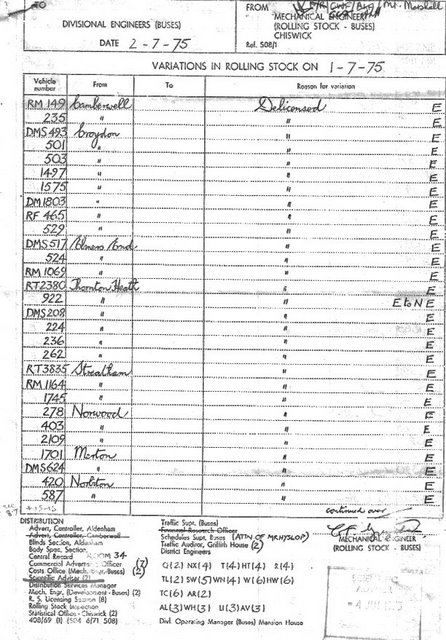 TO
DIVISIONAL ENGINEERS (BUSES)
DATE 2-7-75
FROM Mr. Marshall
MECHANICAL ENGINEER
(ROLLING STOCK - BUSES)
CHISWICK
Ref. 508/1
VARIATIONS IN ROLLING STOCK ON 1-7-75
Vehicle number From To Reason for variation
RM 149 Camberwell Delicensed E
235 " " E
DMS 493 Croydon " E
501 " " E
503 " " E
1497 " " E
1575 " " E
DM 1803 " " E
RF 465 " " E
529 " " E
DMS 517 " E
524 " " E
RM 1069 " " E
RT2380 Thornton Heath " E
922 " " E to N E
DMS 208 " " E
224 " " E
236 " " E
262 " " E
RT3835 Streatham " E
RM 1164 " " E
1745 " " E
278 Norwood " E
403 " " E
2109 " " E
1701 Merton " E
DMS 624 " " E
420 Norbiton " E
587 " " E
continued over
MECHANICAL ENGINEER
(ROLLING STOCK - BUSES)
DISTRIBUTION
Advert. Controller, Aldenham
Advert. Controller, Camberwell
Blinds Section, Aldenham
Body Spec. Section
Central Record ROOM 34
Commercial Advertg. Officer (2)
Costs Office (Mech. Engr. Buses) (2)
Scientific Adviser (2)
Distribution Services Manager
Mech. Engr. (Development - Buses) (2)
R. S. Licensing Section (8)
Rolling Stock Inspection
Statistical Office - Chiswick (2)
408/69 (1) (504 6/71 508)
Traffic Supt. (Buses)
Financial Research Officer
Schedules Supt. Buses (ATTN OF MR HYSLOP)
Traffic Auditor, Griffith House (2)
District Engineers
Q(2) NX(4) T(4) HT(4) R(4)
TL(2) SW(5) WN(4) W(6) HW(6)
TC(6) AR(2)
AL(3) WH(3) U(3) AV(3)
Divl. Operating Manager (Buses) Mansion House